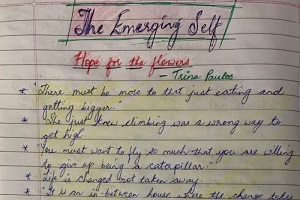 The Emerging Self
Hope for the flowers
- Trina Paulus
* "There must be more to that just eating and
getting bigger"
* "She just knew climbing was a wrong way to
get high.
* "You must want to fly so much that you are willing
to give up being a caterpillar."
* Life is changed not taken away.
* "It is an in-between house where the change takes